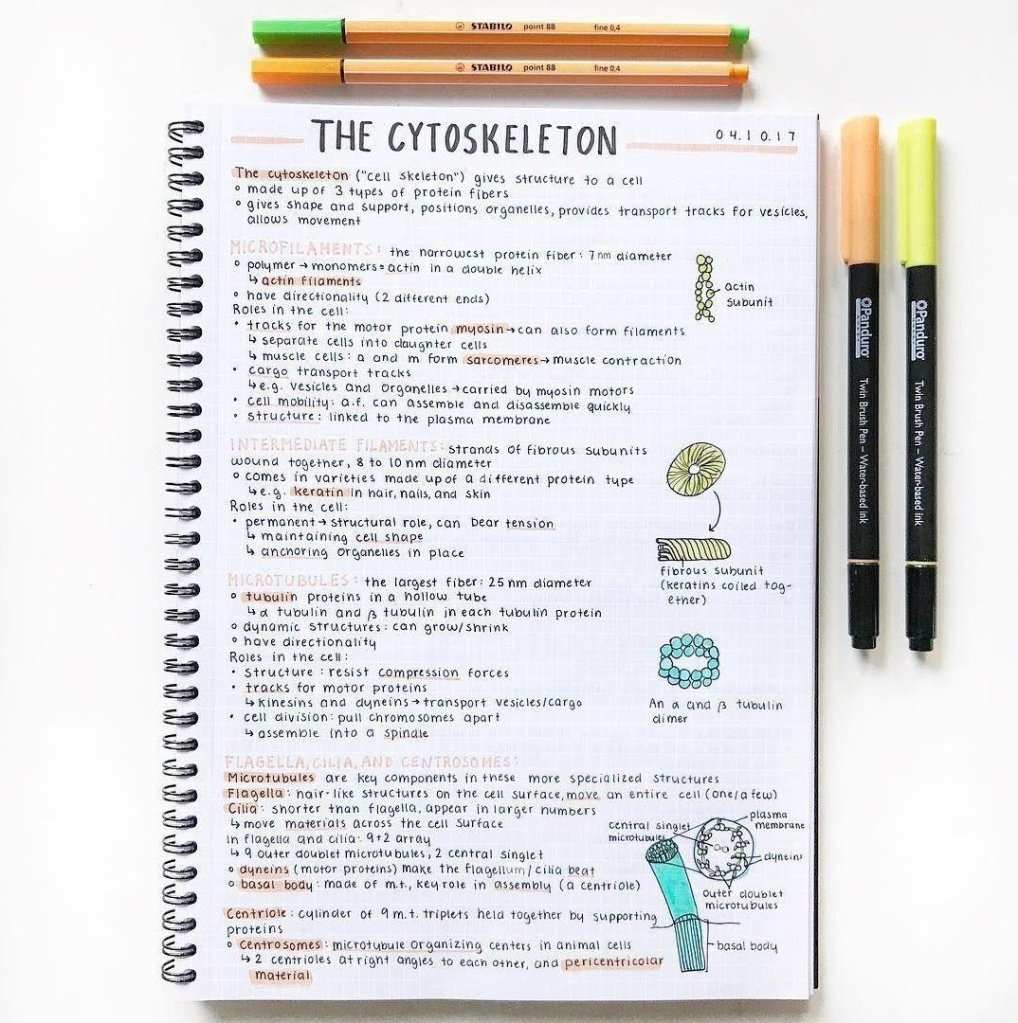 STABILO point 88 fine 0,4
STABILO point 88 fine 0,4
THE CYTOSKELETON
04.10.17
The cytoskeleton ("cell skeleton") gives structure to a cell
◦ made up of 3 types of protein fibers
◦ gives shape and support, positions organelles, provides transport tracks for vesicles,
allows movement
MICROFILAMENTS: the narrowest protein fiber: 7 nm diameter
◦ polymer → monomers = actin in a double helix
↳ actin filaments
◦ have directionality (2 different ends)
Roles in the cell:
• tracks for the motor protein myosin → can also form filaments
↳ separate cells into daughter cells
↳ muscle cells: a and m form sarcomeres → muscle contraction
• cargo transport tracks
↳ e.g. vesicles and organelles → carried by myosin motors
• cell mobility: a.f. can assemble and disassemble quickly
• structure: linked to the plasma membrane
actin
subunit
INTERMEDIATE FILAMENTS: strands of fibrous subunits
wound together, 8 to 10 nm diameter
◦ comes in varieties made up of a different protein type
↳ e.g. keratin in hair, nails, and skin
Roles in the cell:
• permanent → structural role, can bear tension
↳ maintaining cell shape
↳ anchoring organelles in place
fibrous subunit
(keratins coiled tog-
ether)
MICROTUBULES: the largest fiber: 25 nm diameter
◦ tubulin proteins in a hollow tube
↳ α tubulin and β tubulin in each tubulin protein
◦ dynamic structures: can grow/shrink
◦ have directionality
Roles in the cell:
• structure: resist compression forces
• tracks for motor proteins
↳ kinesins and dyneins → transport vesicles/cargo
• cell division: pull chromosomes apart
↳ assemble into a spindle
An α and β tubulin
dimer
FLAGELLA, CILIA, AND CENTROSOMES:
Microtubules are key components in these more specialized structures
Flagella: hair-like structures on the cell surface, move an entire cell (one/a few)
Cilia: shorter than flagella, appear in larger numbers
↳ move materials across the cell surface
In flagella and cilia: 9+2 array
↳ 9 outer doublet microtubules, 2 central singlet
◦ dyneins (motor proteins) make the flagellum/cilia beat
◦ basal body: made of m.t., key role in assembly (a centriole)
Centriole: cylinder of 9 m.t. triplets held together by supporting
proteins
◦ Centrosomes: microtubule organizing centers in animal cells
↳ 2 centrioles at right angles to each other, and pericentricolar
material
central singlet
microtubules
plasma
membrane
dyneins
outer doublet
microtubules
basal body
Panduro Twin Brush Pen – Water-based ink
Panduro Twin Brush Pen – Water-based ink